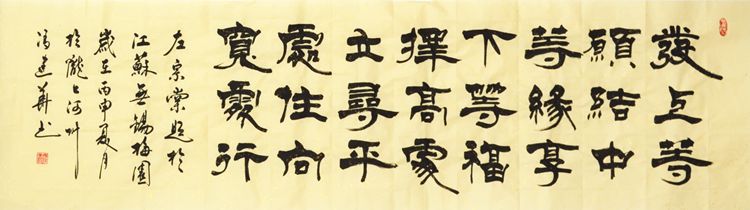 發上等
願結中
等緣享
下等福
擇高處
立尋平
處住向
寬處行
左宗棠題於
江蘇無錫梅園
歲在丙申夏月
於隴上河州
馮建華书